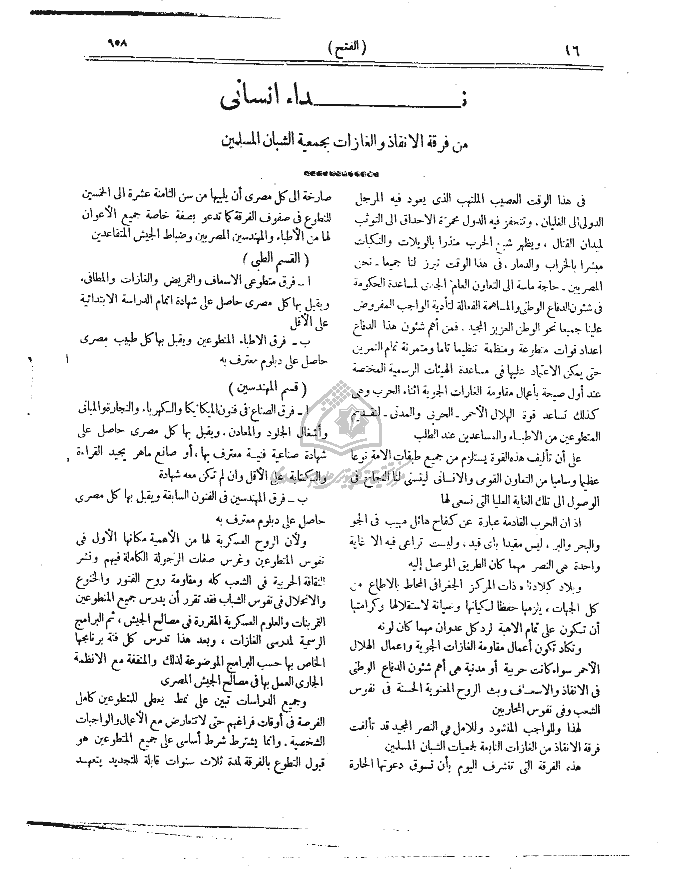 ١٦
( الفتح )
٩٥٨
نـــداء انسانى
من فرقة الانقاذ والغازات بجمعية الشبان المسلمين
فى هذا الوقت العصيب الملتهب الذى يعود فيه المرجل
الدولى الى الغليان ، وتتحفز فيه الدول محمرة الاحداق الى التوثب
لميدان القتال ، ويظهر شبح الحرب منذرا بالويلات والنكبات
مبشرا بالخراب والدمار ، فى هذا الوقت تبرز لنا جميعا ـ نحن
المصريين ـ حاجة ماسة الى التعاون العام الجدى لمساعدة الحكومة
فى شئون الدفاع الوطنى والمساهمة الفعالة لتأدية الواجب المفروض
علينا جميعا نحو الوطن العزيز المجيد . فمن أهم شئون هذا الدفاع
اعداد قوات متطوعة ومنظمة تنظيما تاما ومتمرنة تمام التمرين
حتى يمكن الاعتماد عليها فى مساعدة الهيئات الرسمية المختصة
عند أول صيحة بأعمال مقاومة الغارات الجوية اثناء الحرب وهى
كذلك تساعد قوة الهلال الأحمر ـ الحربى والمدنى ـ لتقديم
المتطوعين من الاطباء والمساعدين عند الطلب
على أن تأليف هذه القوة يستلزم من جميع طبقات الامة نوعا
عظيما وساميا من التعاون القومى والانسانى ليتسنى لنا النجاح فى
الوصول الى تلك الغاية العليا التى نسعى لها
اذ ان الحرب القادمة عبارة عن كفاح هائل مهيب فى الجو
والبحر والبر ، ليس مقيدا بأى قيد ، وليست تراعى فيه الا غاية
واحدة هى النصر مهما كان الطريق الموصل اليه
وبلاد كبلادنا ، ذات المركز الجغرافى المحاط بالاطماع من
كل الجهات ، يلزمها حفظا لكيانها وصيانة لاستقلالها وكرامتها
أن تكون على تمام الاهبة لرد كل عدوان مهما كان لونه
وتكاد تكون أعمال مقاومة الغارات الجوية واعمال الهلال
الأحمر سواء كانت حربية أو مدنية هى أهم شئون الدفاع الوطنى
فى الانقاذ والاسعاف وبث الروح المعنوية الحسنة فى نفوس
الشعب وفى نفوس المحاربين
لهذا وللواجب المنشود وللامل فى النصر المجيد قد تألفت
فرقة الانقاذ من الغازات التابعة لجمعيات الشبان المسلمين
هذه الفرقة التى تتشرف اليوم بأن تسوق دعوتها الحارة
صارخة الى كل مصرى أن يلبيها من سن الثامنة عشرة الى الخمسين
للتطوع فى صفوف الفرقة كما تدعو بصفة خاصة جميع الأعوان
لها من الأطباء والمهندسين المصريين وضباط الجيش المتقاعدين
( القسم الطبى )
ا ـ فرق متطوعى الاسعاف والتمريض والغازات والمطافى.
ويقبل بها كل مصرى حاصل على شهادة اتمام الدراسة الابتدائية
على الأقل
ب ـ فرق الاطباء المتطوعين ويقبل بها كل طبيب مصرى
حاصل على دبلوم معترف به
( قسم المهندسين )
ا ـ فرق الصناع فى فنون الميكانيكا والكهرباء والنجارة والمبانى
وأشغال الجلود والمعادن ، ويقبل بها كل مصرى حاصل على
شهادة صناعية فنية معترف بها ، أو صانع ماهر يجيد القراءة
والكتابة على الأقل وان لم تكن معه شهادة
ب ـ فرق المهندسين فى الفنون السابقة ويقبل بها كل مصرى
حاصل على دبلوم معترف به
ولأن الروح العسكرية لها من الأهمية مكانها الأول فى
نفوس المتطوعين وغرس صفات الرجولة الكاملة فيهم ونشر
الثقافة الحربية فى الشعب كله ومقاومة روح الفتور والخنوع
والانحلال فى نفوس الشباب فقد تقرر أن يدرس جميع المتطوعين
التمرينات والعلوم العسكرية المقررة فى مصالح الجيش ، ثم البرامج
الرسمية لمدرسى الغازات ، وبعد هذا تدرس كل فئة برنامجها
الخاص بها حسب البرامج الموضوعة لذلك والمتفقة مع الانظمة
الجارى العمل بها فى مصالح الجيش المصرى
وجميع الدراسات تبين على نمط يعطى للمتطوعين كامل
الفرصة فى أوقات فراغهم حتى لا تتعارض مع الأعمال والواجبات
الشخصية ـ وانما يشترط شرط أساسى على جميع المتطوعين هو
قبول التطوع بالفرقة لمدة ثلاث سنوات قابلة للتجديد يتعهد